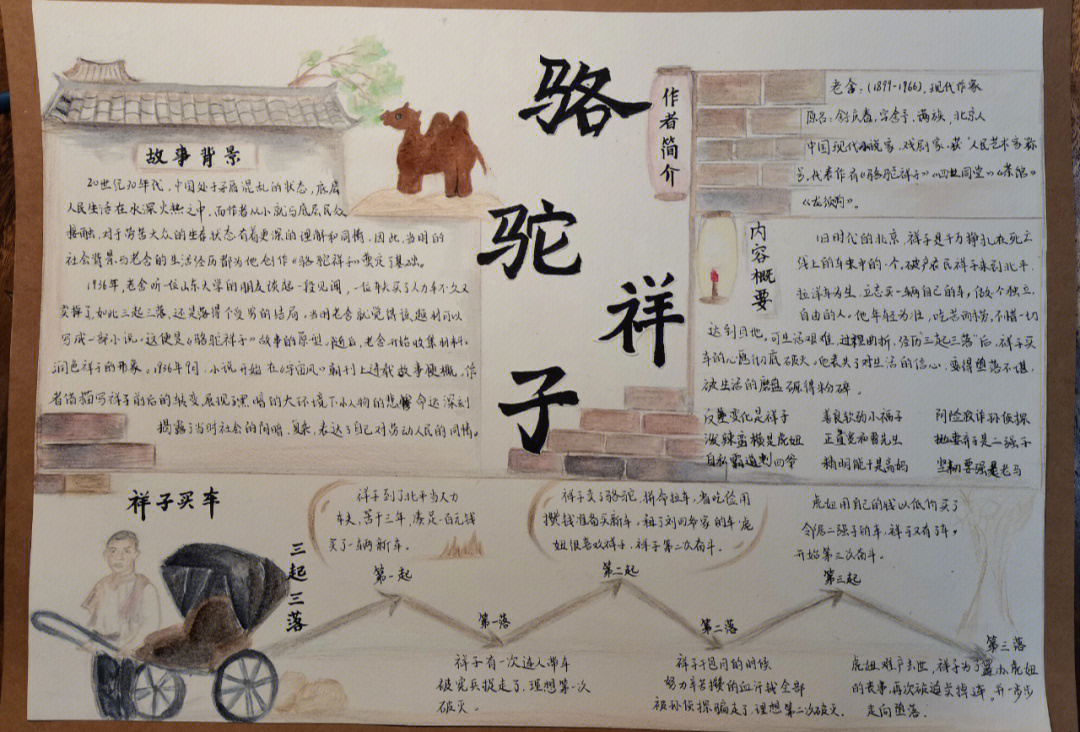 骆
驼
祥
子
故事背景
20世纪30年代，中国处于军阀混乱的状态，底层
人民生活在水深火热之中，而作者从小就与底层民众
接触，对于劳苦大众的生存状态有着更深的理解和同情，因此，当时的
社会背景与老舍的生活经历都为他创作《骆驼祥子》奠定了基础。
1936年，老舍听一位山东大学的朋友谈起一段见闻，一位车夫买了人力车不久又
卖掉了，如此三起三落，还是落得个受穷的结局，当时老舍就觉得该题材可以
写成一部小说，这便是《骆驼祥子》故事的原型。随后，老舍开始收集材料，
润色祥子的形象。1936年9月，小说开始在《宇宙风》期刊上连载故事梗概，作
者描写祥子前后的转变，展现了黑暗的大环境下小人物的悲惨命运深刻
揭露了当时社会的阴暗，复杂，表达了自己对劳动人民的同情。
作者简介
老舍：(1899-1966)，现代作家
原名：舒庆春，字舍予，满族，北京人
中国现代小说家、戏剧家，获"人民艺术家称
号，代表作有《骆驼祥子》《四世同堂》《茶馆》
《龙须沟》。
内容概要
旧时代的北京，祥子是千万挣扎在死亡
线上的车夫中的一个，破产农民祥子来到北平，
拉洋车为生，立志买一辆自己的车，做个独立，
自由的人。他年轻力壮，吃苦耐劳，不惜一切
达到目地，可生活艰难，过程曲折，经历"三起三落"后，祥子买
车的心愿彻底破灭，他丧失了对生活的信心，变得堕落不堪，
被生活的磨盘碾得粉碎。
反差变化是祥子 善良软弱小福子 阴险欺诈孙侦探
泼辣蛮横是虎妞 正直宽和曹先生 抛妻弃子是二强子
自私霸道刘四爷 精明能干是高妈 坚韧要强是老马
祥子买车
三起三落
祥子到了北平当人力
车夫，苦干三年，凑足一百元钱
买了一辆新车。
第一起
祥子卖了骆驼，拼命拉车，省吃俭用
攒钱准备买新车，租了刘四爷家的车，虎
妞很喜欢祥子，祥子第二次奋斗。
第二起
虎妞用自己的钱以低价买了
邻居二强子的车，祥子又有了车，
开始第三次奋斗。
第三起
第一落
祥子有一次连人带车
被宪兵捉走了，理想第一次
破灭。
第二落
祥子干包月的时候
努力辛苦攒的血汗钱全部
被孙侦探骗走了，理想第二次破灭。
第三落
虎妞难产去世，祥子为了置办虎妞
的丧事，再次被迫卖掉车，一步步
走向堕落。